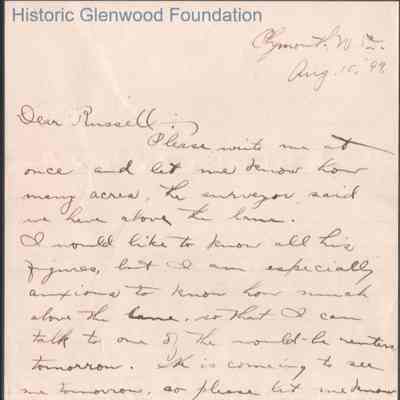 Historic Glenwood Foundation
Aug. 15, '99
Dear Russell:
Please write me at
once and let me know how
many acres, the surveyor said
we have above the lane.
I would like to know all his
figures, but I am especially
anxious to know how much
above the lane, so that I can
talk to one of the would-be renters
tomorrow. He is comeing to see
me tomorrow, so please let me know